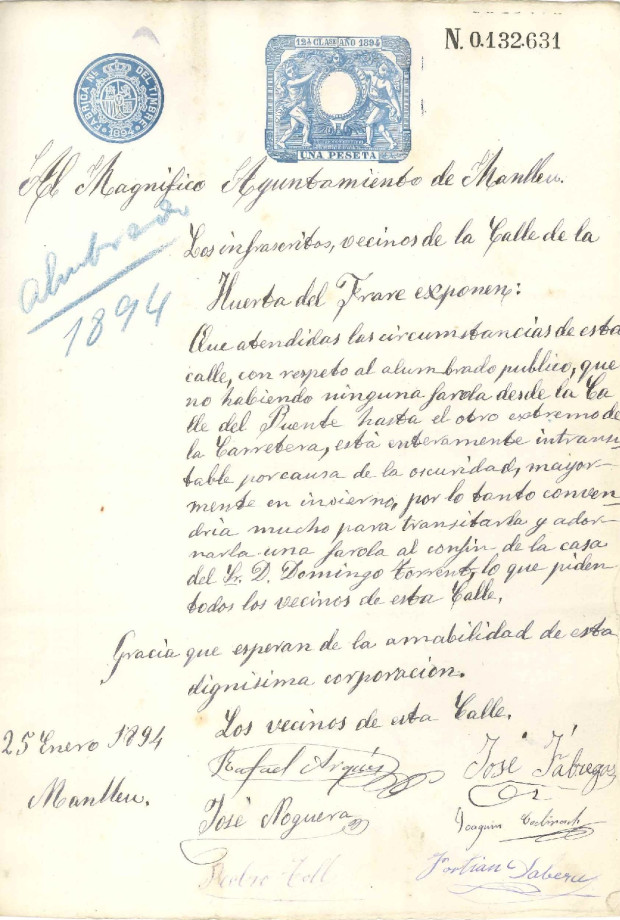 N. 0.132.631
12ª CLASE AÑO 1894
FABRICA Nª DEL TIMBRE
1894
UNA PESETA
Al Magnífico Ayuntamiento de Manlleu.
alumbrado
1894
Los infrascritos, vecinos de la Calle de la
Huerta del Frare exponen:
Que atendidas las circumstancias de esta
calle, con respeto al alumbrado publico, que
no habiendo ninguna farola desde la Ca
lle del Puente hasta el otro extremo de
la Carretera, está enteramente intransi
table por causa de la oscuridad, mayor-
mente en invierno, por lo tanto conven
dria mucho para transitarla y ador-
narla una farola al confin de la casa
del Sr. D. Domingo Torrent, lo que piden
todos los vecinos de esta Calle.
Gracia que esperan de la amabilidad de esta
dignisima corporacion.
Los vecinos de esta Calle.
25 Enero 1894
Manlleu.
Rafael Arqués
José Fábregas
José Noguera
Joaquin
Pedro Coll
Fortian